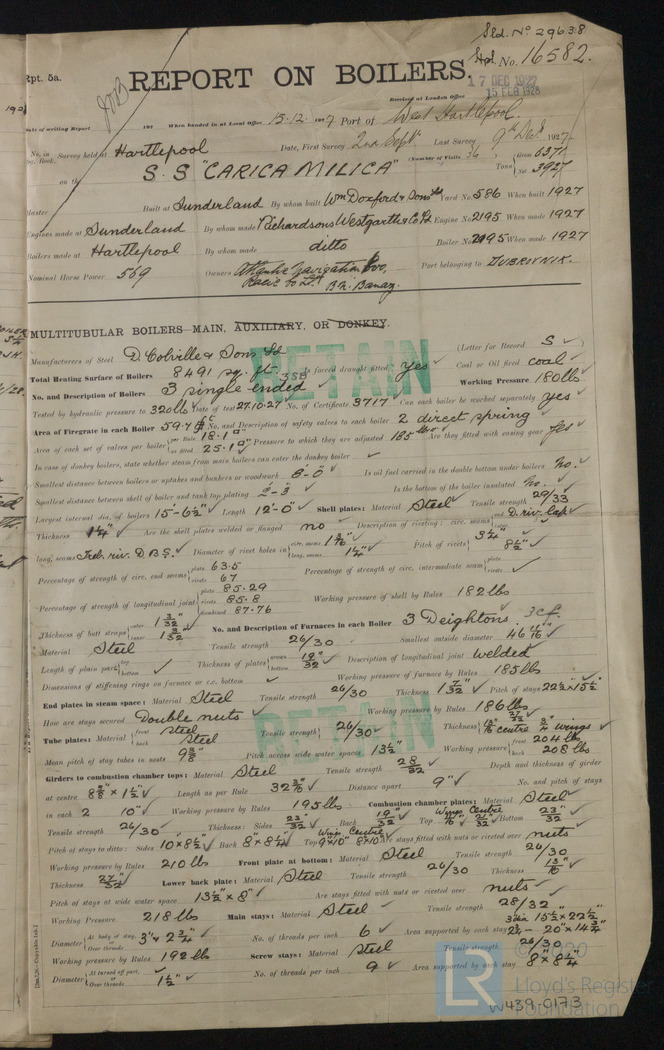 Sld. No 29638
Rpt. 5a.
Hpl. No. 16582.
REPORT ON BOILERS.
17 DEC 1927
15 FEB 1928
Received at London Office
Date of writing Report 192 When handed in at Local Office 15.12. 1927 Port of West Hartlepool
No. in Reg. Book. Survey held at Hartlepool Date, First Survey 2nd Septr. Last Survey 9th Decr 1927
on the S.S "CARICA MILICA" (Number of Visits 36) Tons Gross 6371 Net 3927
Master Built at Sunderland By whom built Wm Doxford & Sons Ld Yard No. 586 When built 1927
Engines made at Sunderland By whom made Richardsons Westgarth & Co Ld Engine No. 2195 When made 1927
Boilers made at Hartlepool By whom made ditto Boiler No. 2195 When made 1927
Nominal Horse Power 569 Owners Atlantic Navigation Coy, Port belonging to DUBROVNIK.
MULTITUBULAR BOILERS MAIN, AUXILIARY, OR DONKEY.
Manufacturers of Steel D Colville & Sons Ld (Letter for Record S)
Total Heating Surface of Boilers 8491 sq. ft. Is forced draught fitted yes Coal or Oil fired coal
No. and Description of Boilers 3 single ended Working Pressure 180 lbs
Tested by hydraulic pressure to 320 lbs Date of test 27.10.27 No. of Certificate 3717 Can each boiler be worked separately yes
Area of Firegrate in each Boiler 59.4 No. and Description of safety valves to each boiler 2 direct spring
Area of each set of valves per boiler per Rule 18.1 as fitted 25.1 Pressure to which they are adjusted 185 lbs Are they fitted with easing gear yes
In case of donkey boilers, state whether steam from main boilers can enter the donkey boiler
Smallest distance between boilers or uptakes and bunkers or woodwork Is oil fuel carried in the double bottom under boilers No.
Smallest distance between shell of boiler and tank top plating 2'-3" Is the bottom of the boiler insulated No.
Largest internal dia. of boilers 15'-6½" Length 12'-0" Shell plates: Material Steel Tensile strength 29/33
Thickness 1¼" Are the shell plates welded or flanged no Description of riveting: circ. seams end D. riv. Lap
long. seams Treb. riv. D B S. Diameter of rivet holes in circ. seams long. seams 1¼" Pitch of rivets 3¼" 8½"
Percentage of strength of circ. end seams plate 63.5 rivets 67 Percentage of strength of circ. intermediate seam plate rivets
Percentage of strength of longitudinal joint plate 85.29 rivets 85.8 combined 87.76 Working pressure of shell by Rules 182 lbs
Thickness of butt straps outer 1 3/32" inner 1 3/32" No. and Description of Furnaces in each Boiler 3 Deightons
Material Steel Tensile strength 26/30 Smallest outside diameter
Length of plain part top bottom Thickness of plates crown bottom 19/32" Description of longitudinal joint welded
Dimensions of stiffening rings on furnace or c.c. bottom Working pressure of furnace by Rules 185 lbs
End plates in steam space: Material Steel Tensile strength 26/30 Thickness 1 7/32" Pitch of stays 22½" x 15½"
How are stays secured Double nuts Working pressure by Rules 186 lbs
Tube plates: Material front Steel back Steel Tensile strength 26/30 Thickness centre ¾" wings
Mean pitch of stay tubes in nests 9⅜" Pitch across wide water spaces 13½" Working pressure front 204 lbs back 208 lbs
Girders to combustion chamber tops: Material Steel Tensile strength 28/32 Depth and thickness of girder
at centre 8⅝" x 1½" Length as per Rule Distance apart 9" No. and pitch of stays
in each 2 10" Working pressure by Rules 195 lbs Combustion chamber plates: Material Steel
Tensile strength 26/30 Thickness: Sides 23/32" Back 19/32" Top Wings Centre Bottom 23/32"
Pitch of stays to ditto: Sides 10 x 8½" Back 8" x 8¼" Top Wings 9" x 10" Centre 8" x 10" Are stays fitted with nuts or riveted over nuts
Working pressure by Rules 210 lbs Front plate at bottom: Material Steel Tensile strength 26/30
Thickness 27/32" Lower back plate: Material Steel Tensile strength 26/30 Thickness 13/16"
Pitch of stays at wide water space 13½" x 8" Are stays fitted with nuts or riveted over nuts
Working Pressure 218 lbs Main stays: Material Steel Tensile strength 28/32
Diameter At body of stay, Over threads 3" & 2¾" No. of threads per inch 6 Area supported by each stay 3" dia 15½" x 22½" 2¾ - 20" x 14¾"
Working pressure by Rules 192 lbs Screw stays: Material Steel Tensile strength 26/30
Diameter At turned off part, Over threads 1½" No. of threads per inch 9 Area supported by each stay 8" x 8¼"
RETAIN
RETAIN
© 2020
Lloyd's Register
Foundation
LR
W439-0173